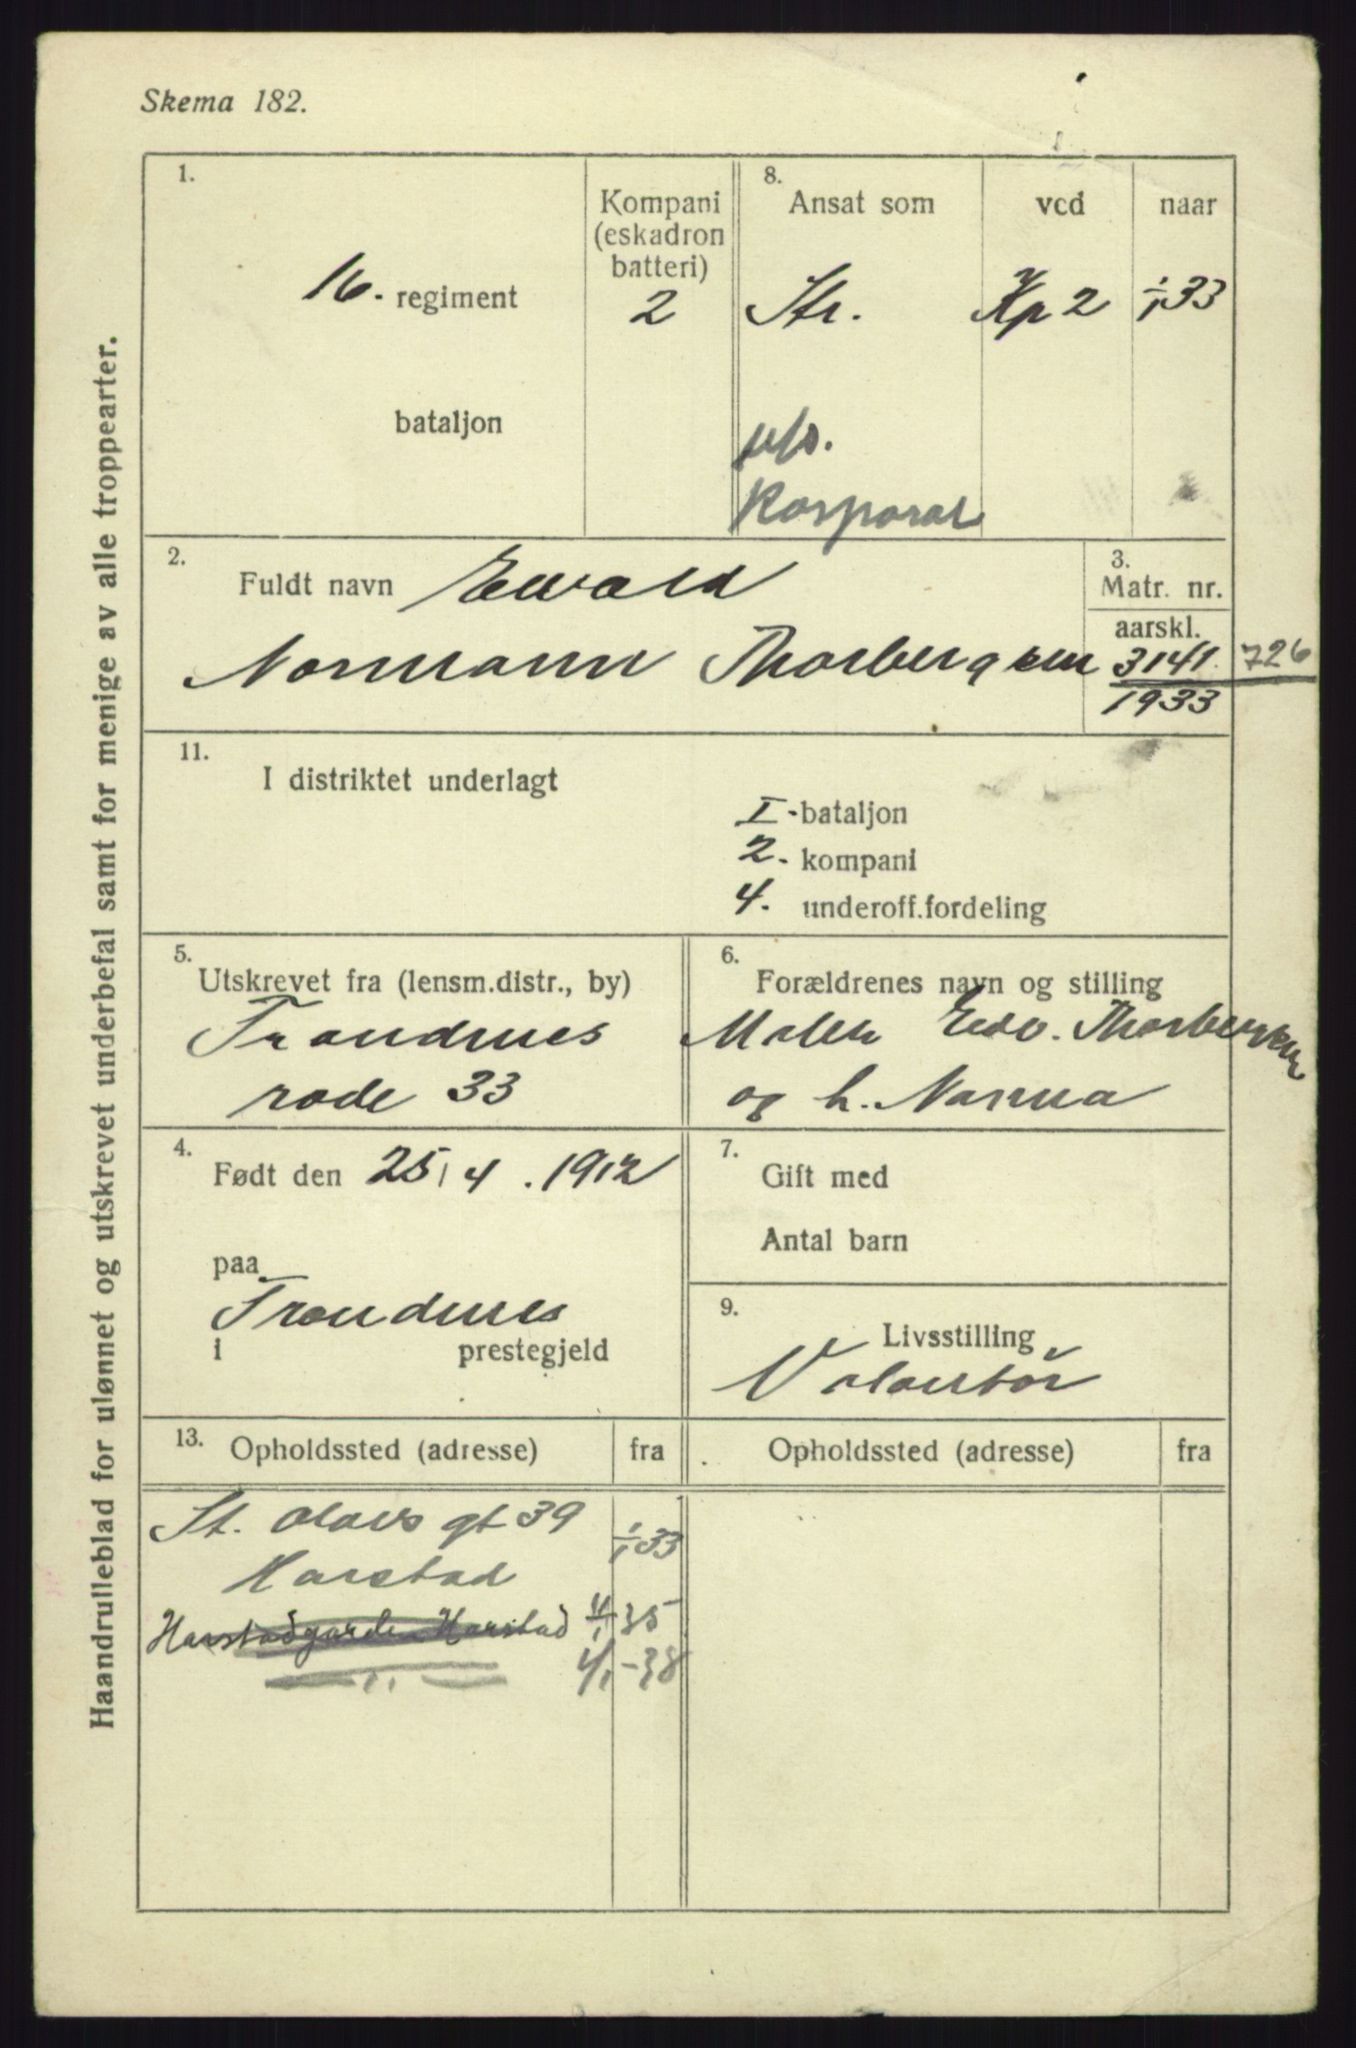 Skema 182.
Haandrulleblad for ulønnet og utskrevet underbefal samt for menige av alle troppearter.
1.
16. regiment
bataljon
Kompani
(eskadron
batteri)
2
8.
Ansat som
ved
naar
Str.
Kp 2
1/1 33
Korporal
2.
Fuldt navn Ewald
Normann Thorbergsen
3.
Matr. nr.
aarskl.
3141 726
1933
11.
I distriktet underlagt
I - bataljon
2. kompani
4. underoff.fordeling
5.
Utskrevet fra (lensm.distr., by)
Trondenes
rode 33
6.
Forældrenes navn og stilling
Maler Edv. Thorbergsen
og h. Nanna
4.
Født den 25/4. 1912
paa
Trondenes
i prestegjeld
7.
Gift med
Antal barn
9.
Livsstilling
Volontør
13.
Opholdssted (adresse) fra
Opholdssted (adresse) fra
St. Olavs gt 39 1/1 33
Harstad
Harstadgården Harstad 4/1 35
4/1-38